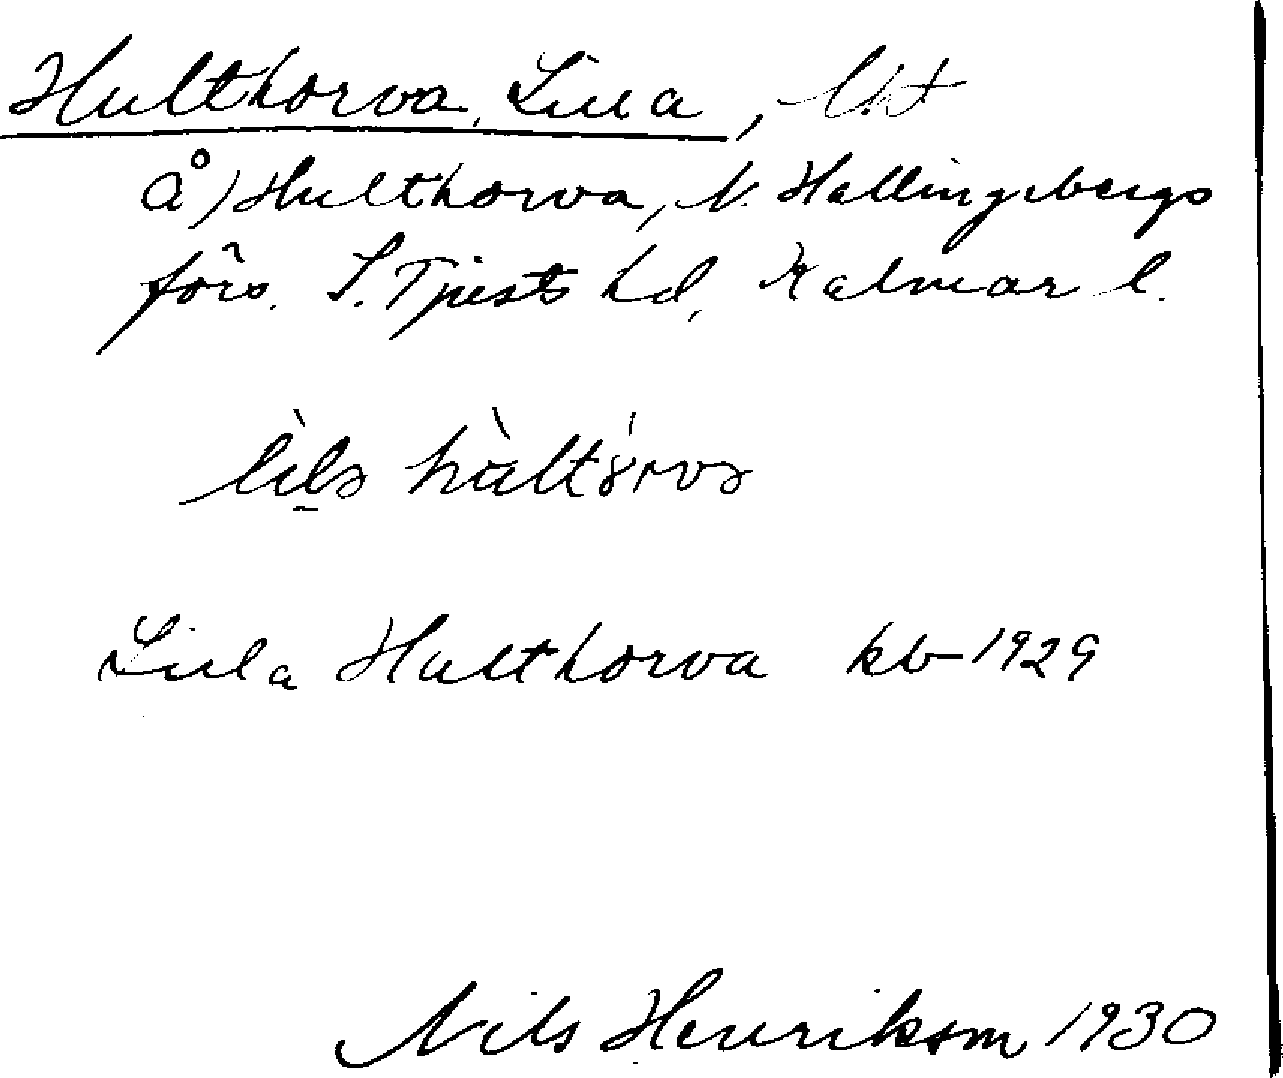 Hulthorva, Lilla, lht
å) Hulthorva, N. Hallingebergs
förs. S. Tjusts hd, Kalmar l.
Lilla Hulthorva kb 1929
Nils Henrikson 1930